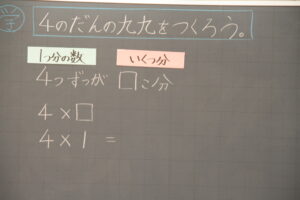 4のだんの九九をつくろう。
1つ分の数 いくつ分
4つずつが □こ分
4×□
4×1 =